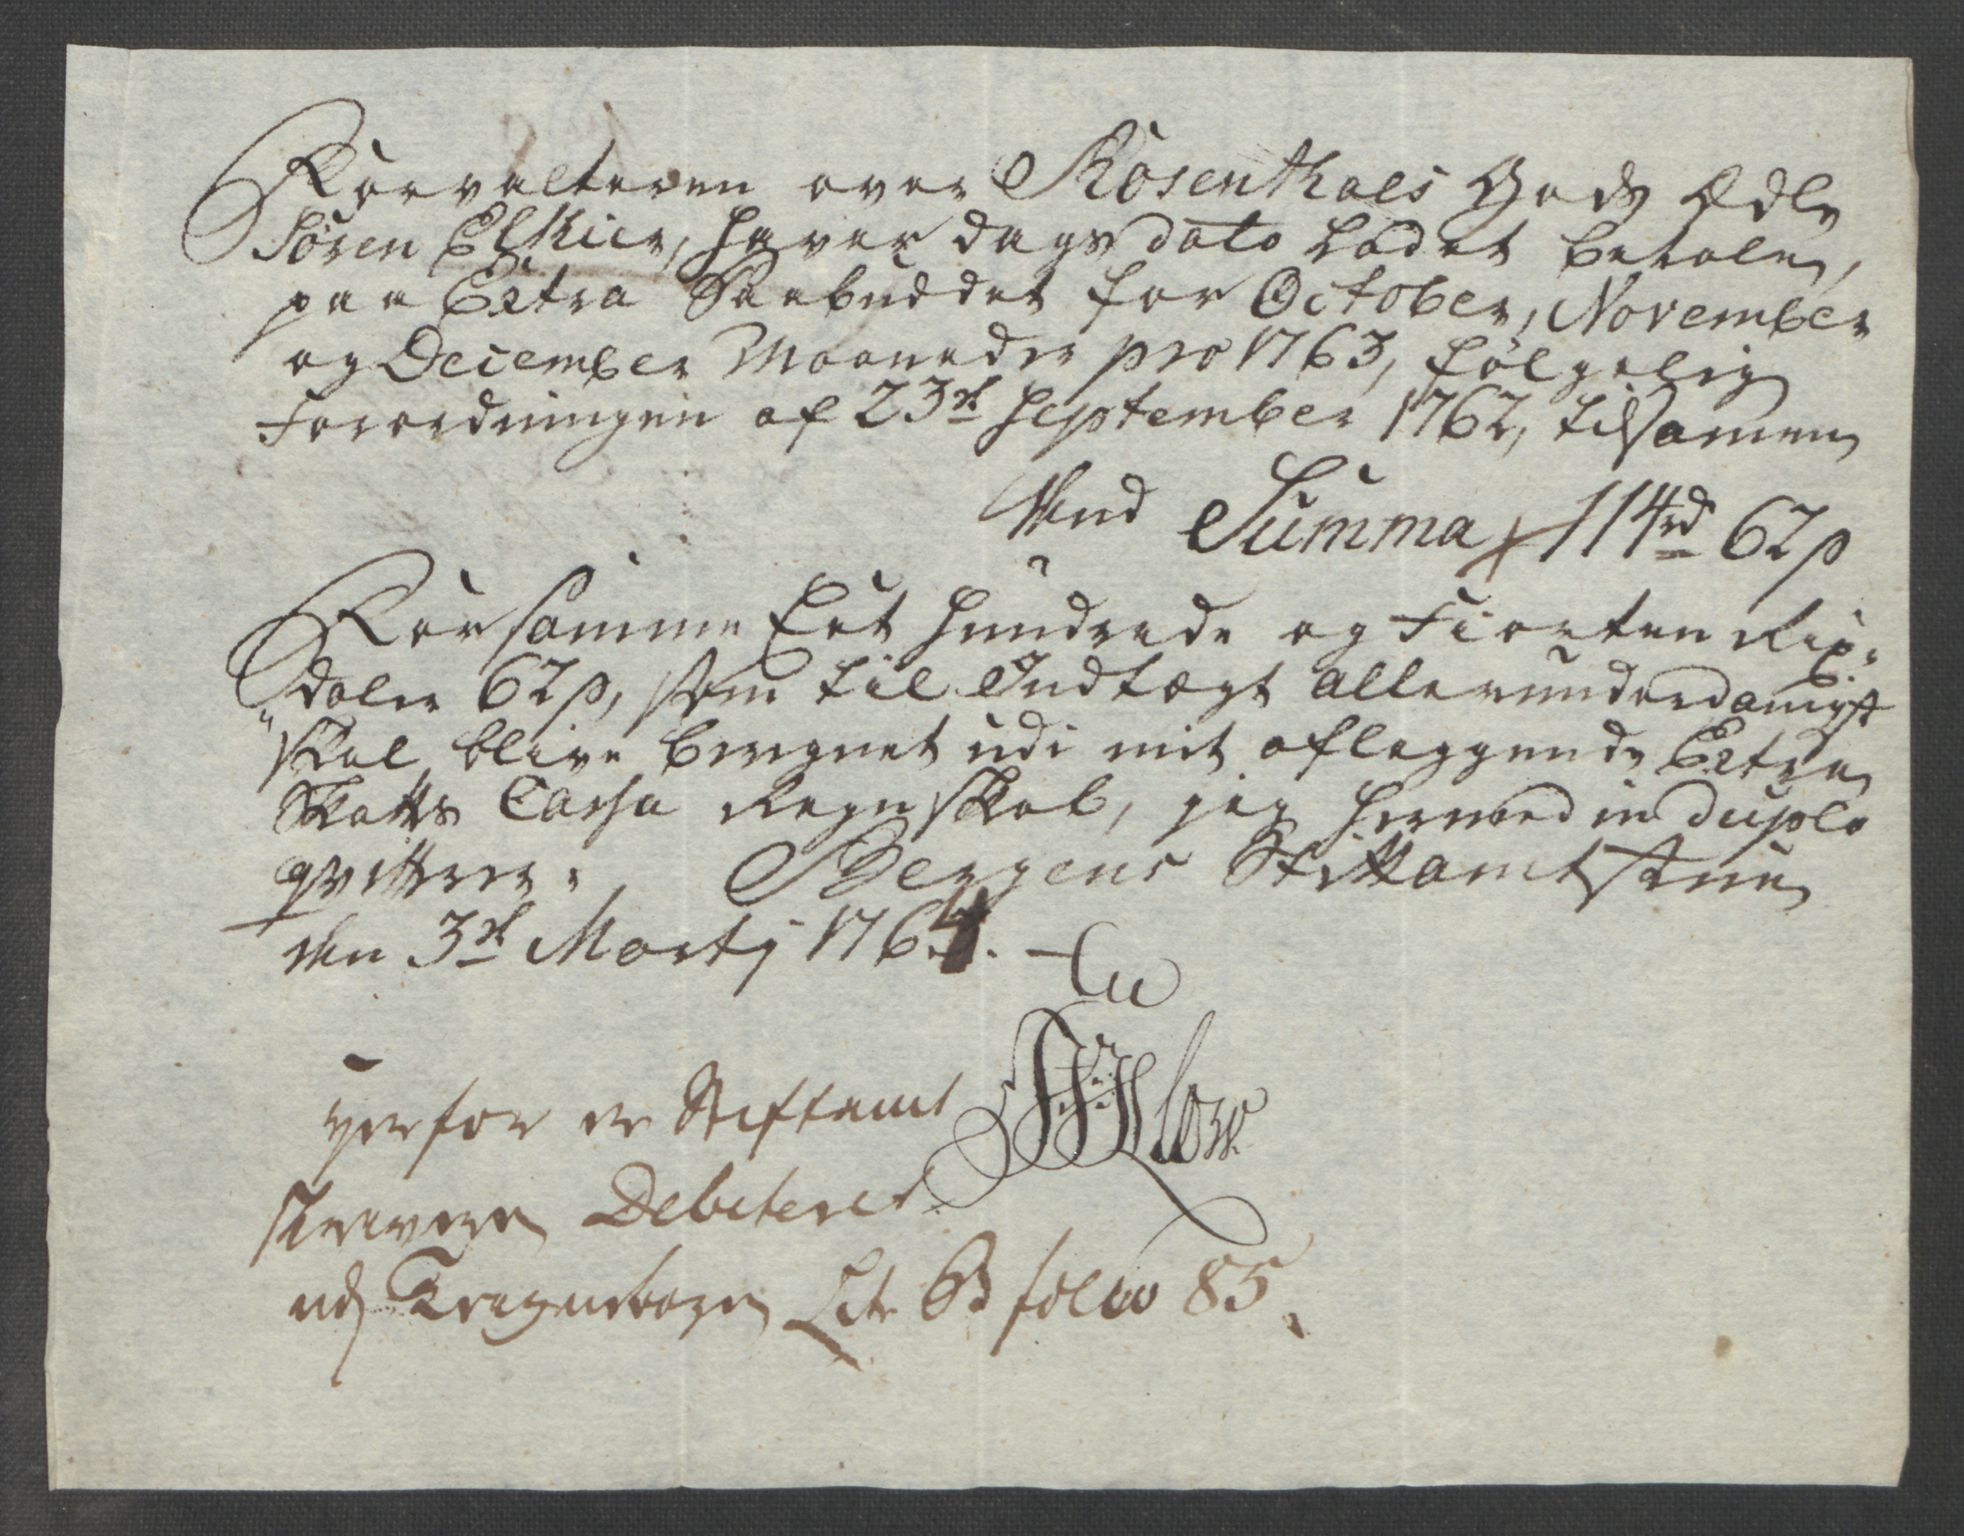 Forvalteren over Rosenthals Gods Ædle
Søren Elkier, haver dags dato ladet betale,
paa Extra Paabuddet for October, November
og December Maaneder pro 1763, følgelig
Forordningen af 23de September 1762, tilsamen
Summa 114rd 62s
For samme Eet Hundrede og Fiorten Rix-
daler 62s, som til Indtægt allerunderdanigst
skal blive beregnet udi mit aflæggende Extra
Skatts Cassa Regnskab, jeg hermed in duplo
qvitterer. Bergens Stiftamtstue
den 3de Martij 1764.
herfor er Stiftamt
skriveren Debiteret
udj Lit B folio 85